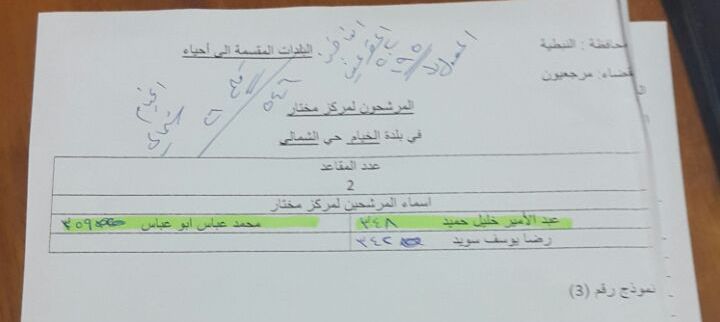 محافظة : النبطية
البلدات المقسمة الى أحياء
قضاء: مرجعيون
المرشحون لمركز مختار
في بلدة الخيام حي الشمالي
عدد المقاعد
2
اسماء المرشحين لمركز مختار
عبد الأمير خليل حميد ٣٤٨ محمد عباس ابو عباس ٣٥٩
رضا يوسف سويد ٣٤٢
نموذج رقم (3)
الخيام
٥٤٦